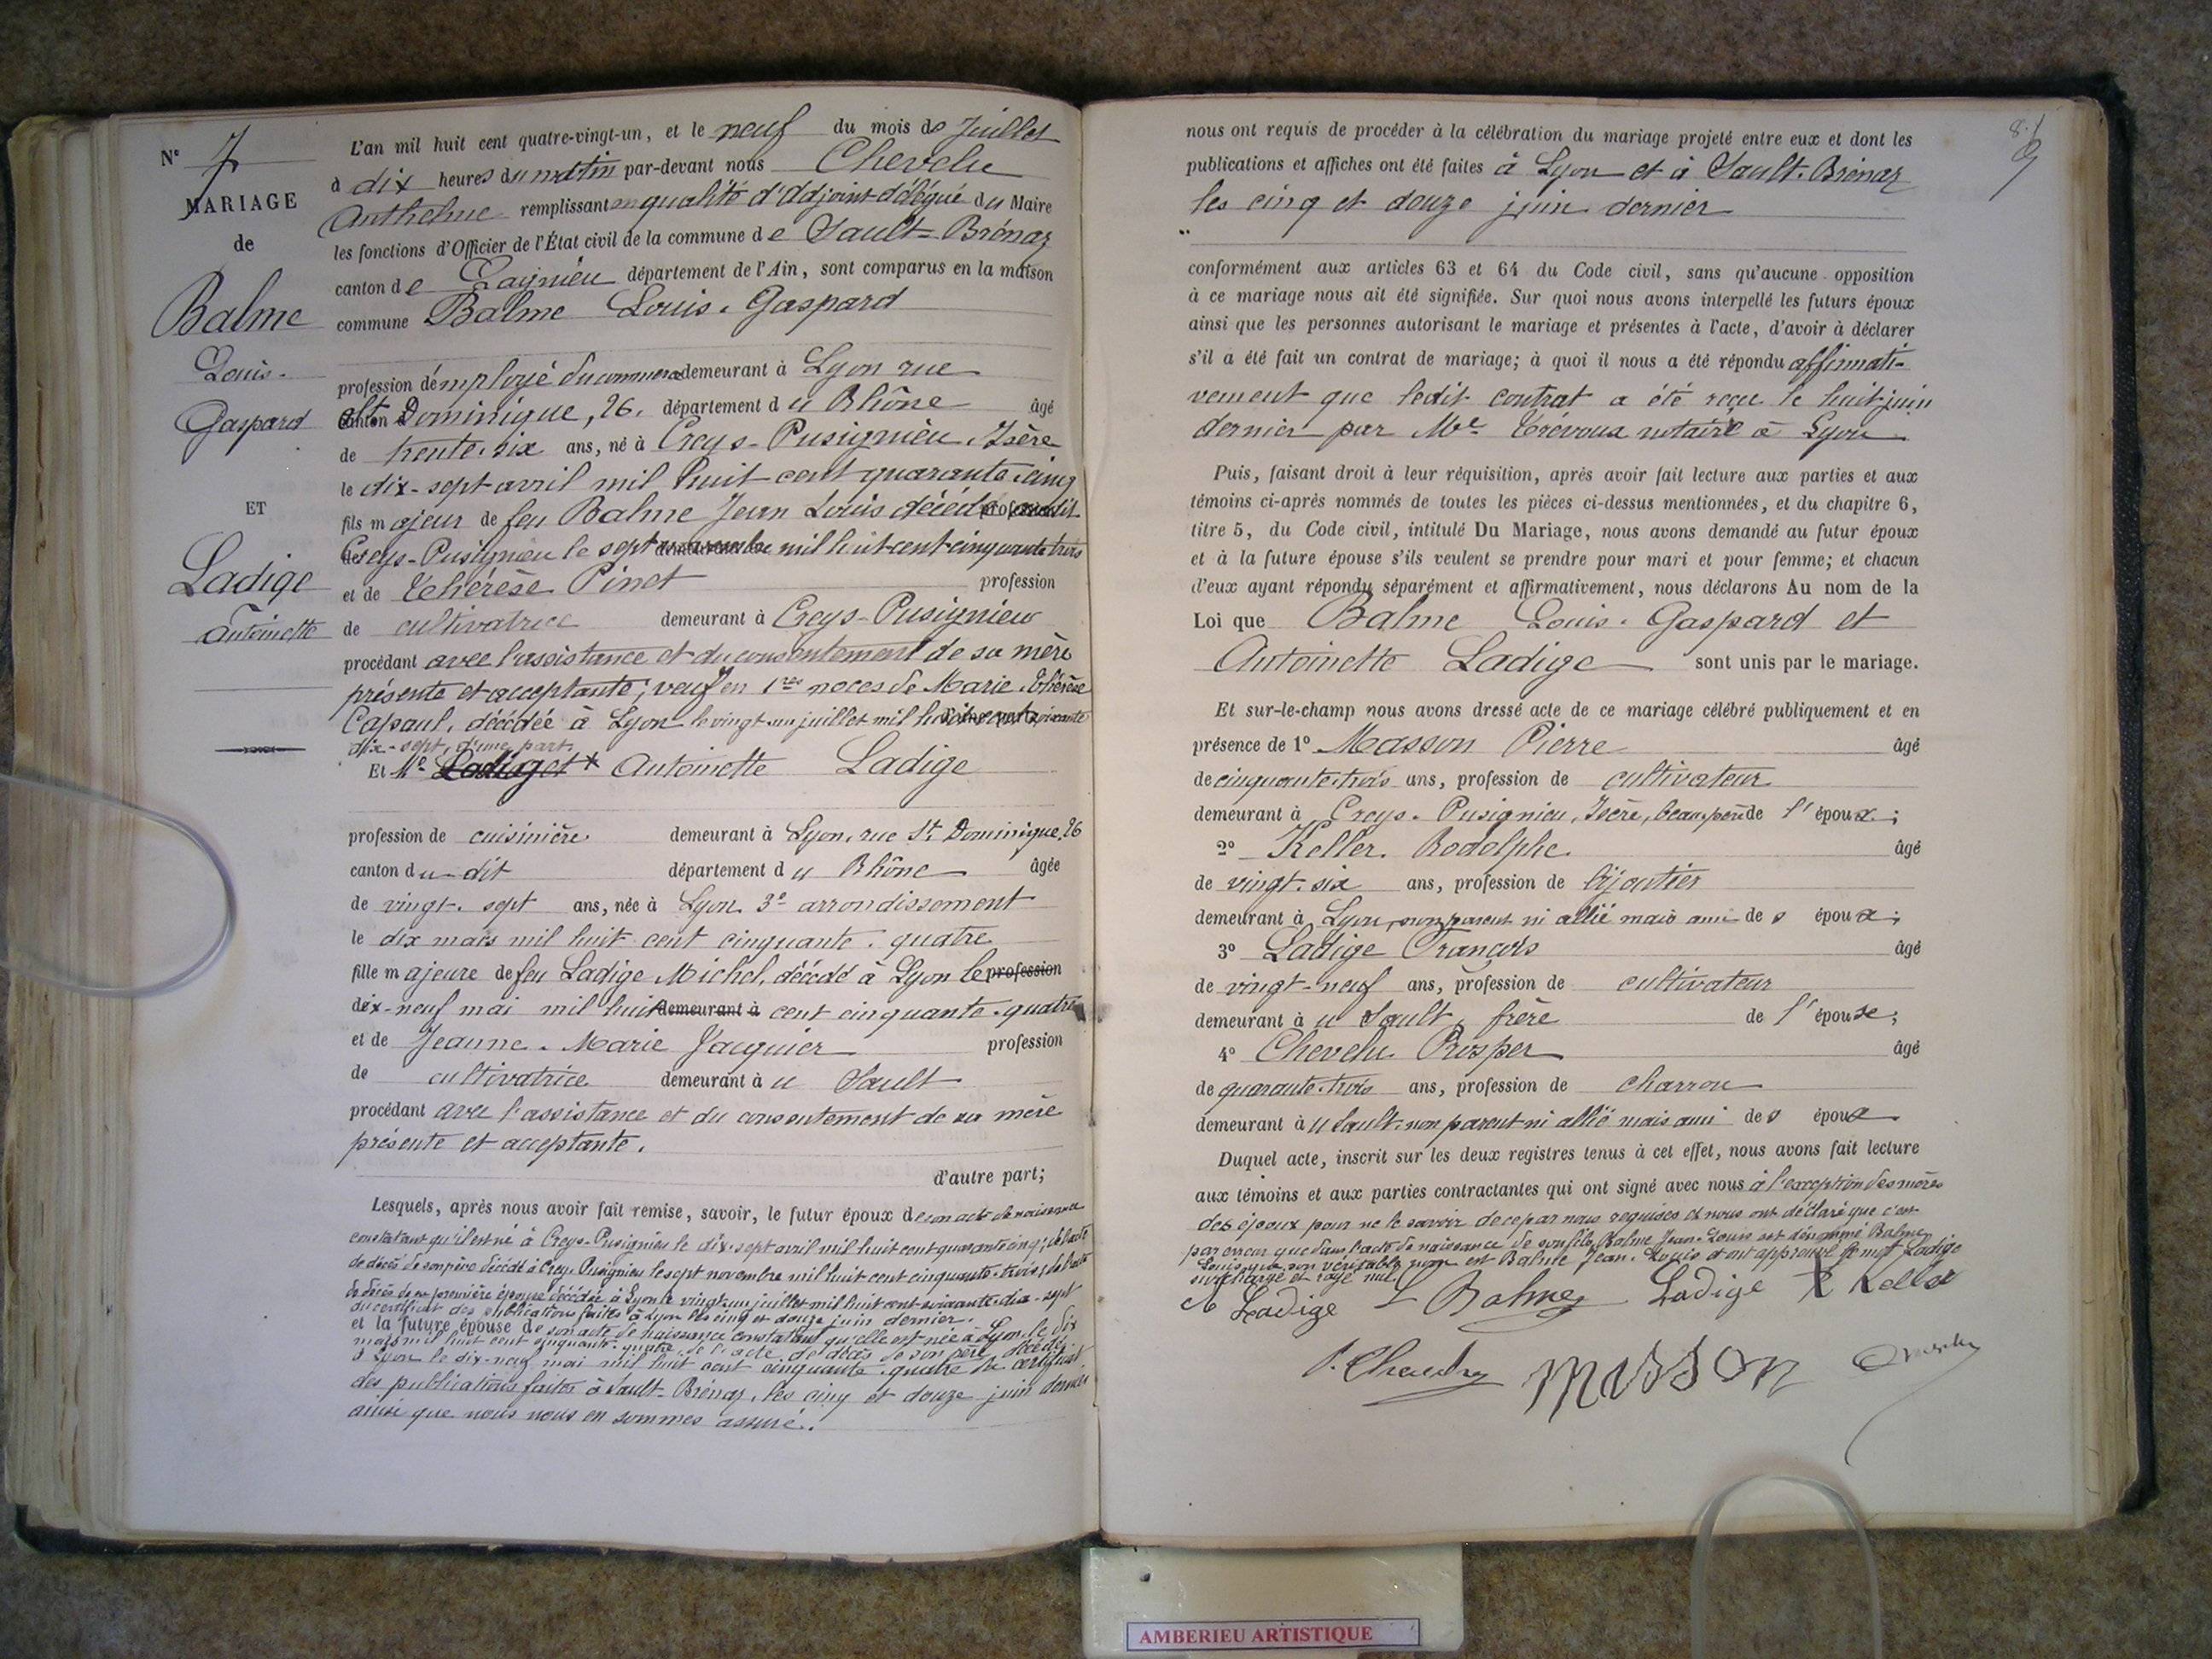 N° 7
MARIAGE
de
Balme
Louis-
Gaspard
ET
Ladige
Antoinette
L'an mil huit cent quatre-vingt-un, et le neuf du mois de Juillet
à dix heures du matin par-devant nous Chevelu
Anthelme remplissant en qualité d'Adjoint délégué du Maire
les fonctions d'Officier de l'État civil de la commune de Sault-Brénaz
canton de Lagnieu département de l'Ain, sont comparus en la maison
commune Balme Louis-Gaspard
profession d'employé du commerce demeurant à Lyon rue
St Dominique, 26. département du Rhône âgé
de trente-six ans, né à Creys-Pusignieu, Isère
le dix-sept avril mil huit cent quarante-cinq
fils majeur de feu Balme Jean Louis décédé audit
Creys-Pusignieu le sept novembre mil huit cent cinquante trois
et de Thérèse Pinet profession
de cultivatrice demeurant à Creys-Pusignieu
procédant avec l'assistance et du consentement de sa mère
présente et acceptante; veuf en 1res noces de Marie-Thérèse
Capaul, décédée à Lyon le vingt-un juillet mil huit cent soixante
dix-sept, d'une part.
Et Me Ladiget x Antoinette Ladige
profession de cuisinière demeurant à Lyon, rue St Dominique, 26
canton du dit département du Rhône âgée
de vingt-sept ans, née à Lyon 3e arrondissement
le dix mars mil huit cent cinquante-quatre
fille majeure de feu Ladige Michel, décédé à Lyon le profession
dix-neuf mai mil huit demeurant à cent cinquante-quatre
et de Jeanne-Marie Jacquier profession
de cultivatrice demeurant à u Sault
procédant avec l'assistance et du consentement de sa mère
présente et acceptante.
d'autre part;
Lesquels, après nous avoir fait remise, savoir, le futur époux de son acte de naissance
constatant qu'il est né à Creys-Pusignieu le dix-sept avril mil huit cent quarante cinq; de l'acte
de décès de son père décédé à Creys-Pusignieu le sept novembre mil huit cent cinquante-trois; de l'acte
de décès de sa première épouse décédée à Lyon le vingt-un juillet mil huit cent soixante-dix-sept
du certificat des publications faites à Lyon les cinq et douze juin dernier.
et la future épouse de son acte de naissance constatant qu'elle est née à Lyon, le dix
mars mil huit cent cinquante-quatre, de l'acte de décès de son père décédé
à Lyon le dix-neuf mai mil huit cent cinquante-quatre, du certificat
des publications faites à Sault-Brénaz, les cinq et douze juin dernier
ainsi que nous nous en sommes assuré.
nous ont requis de procéder à la célébration du mariage projeté entre eux et dont les
publications et affiches ont été faites à Lyon et à Sault-Brénaz
les cinq et douze juin dernier
conformément aux articles 63 et 64 du Code civil, sans qu'aucune opposition
à ce mariage nous ait été signifiée. Sur quoi nous avons interpellé les futurs époux
ainsi que les personnes autorisant le mariage et présentes à l'acte, d'avoir à déclarer
s'il a été fait un contrat de mariage; à quoi il nous a été répondu affirmati-
vement que ledit contrat a été reçu le huit juin
dernier par Me Trévoux notaire à Lyon
Puis, faisant droit à leur réquisition, après avoir fait lecture aux parties et aux
témoins ci-après nommés de toutes les pièces ci-dessus mentionnées, et du chapitre 6,
titre 5, du Code civil, intitulé Du Mariage, nous avons demandé au futur époux
et à la future épouse s'ils veulent se prendre pour mari et pour femme; et chacun
d'eux ayant répondu séparément et affirmativement, nous déclarons Au nom de la
Loi que Balme Louis-Gaspard et
Antoinette Ladige sont unis par le mariage.
Et sur-le-champ nous avons dressé acte de ce mariage célébré publiquement et en
présence de 1° Masson Pierre âgé
de cinquante-trois ans, profession de cultivateur
demeurant à Creys-Pusignieu, Isère, beau-père de l'époux;
2° Keller Rodolphe âgé
de vingt-six ans, profession de bijoutier
demeurant à Lyon, non parent ni allié mais ami des époux;
3° Ladige François âgé
de vingt-neuf ans, profession de cultivateur
demeurant à u Sault, frère de l'épouse;
4° Chevelu Prosper âgé
de quarante-trois ans, profession de charron
demeurant à u Sault, non parent ni allié mais ami des époux
Duquel acte, inscrit sur les deux registres tenus à cet effet, nous avons fait lecture
aux témoins et aux parties contractantes qui ont signé avec nous à l'exception des mères
des époux pour ne le savoir de ce par nous requises et nous ont déclaré que c'est
par erreur que dans l'acte de naissance de son fils, Balme Jean-Louis est dénommé Balme
Louis, que son véritable nom est Balme Jean-Louis et ont approuvé le mot Ladige
surchargé et rayé nul.
A Ladige L Balme Ladige R Keller
P. Chevelu Masson
AMBERIEU ARTISTIQUE